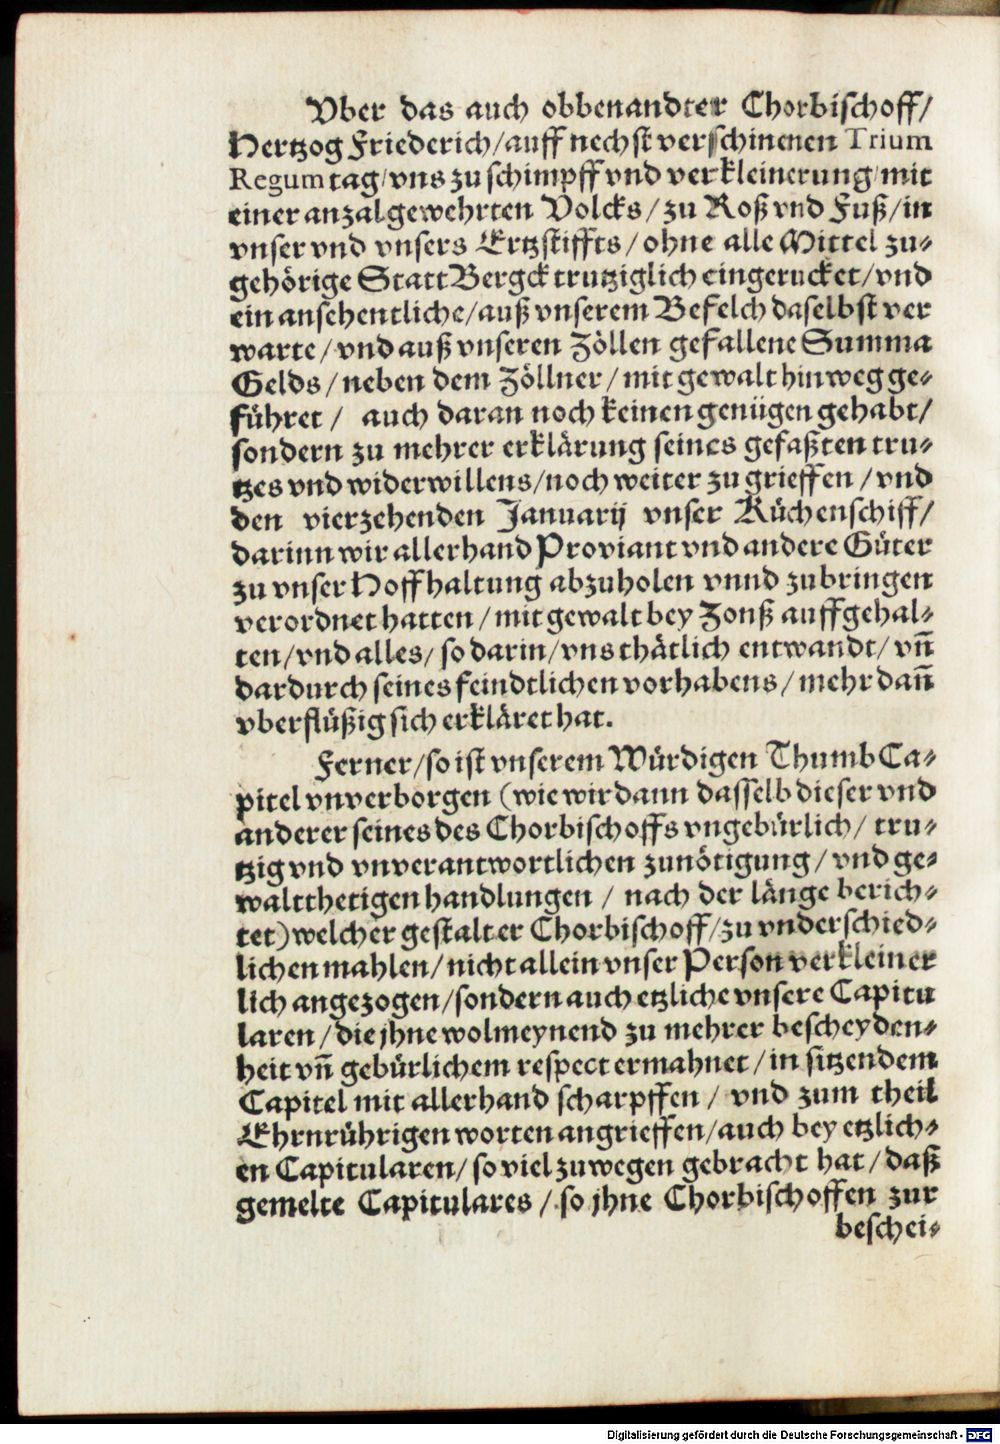 Vber das auch obbenandter Chorbischoff/
Hertzog Friederich/auff nechst verschinenen Trium
Regum tag/vns zu schimpff vnd verkleinerung/mit
einer anzal gewehrten Volcks/zu Roß vnd Fuß/in
vnser vnd vnsers Ertzstiffts/ohne alle Mittel zu⸗
gehörige Statt Bergck trutziglich eingerucket/vnd
ein ansehentliche/auß vnserem Befelch daselbst ver
warte/vnd auß vnseren Zöllen gefallene Summa
Gelds/neben dem Zöllner/mit gewalt hinweg ge⸗
führet/ auch daran noch keinen genügen gehabt/
sondern zu mehrer erklärung seines gefaßten tru⸗
tzes vnd widerwillens/noch weiter zu grieffen/vnd
den vierzehenden Januarij vnser Küchenschiff/
darinn wir allerhand Proviant vnd andere Güter
zu vnser Hoffhaltung abzuholen vnnd zubringen
verordnet hatten/mit gewalt bey Zonß auffgehal⸗
ten/vnd alles/so darin/vns thätlich entwandt/vñ
dardurch seines feindtlichen vorhabens/mehr dañ
vberflüßig sich erkläret hat.
Ferner/so ist vnserem Würdigen Thumb Ca⸗
pitel vnverborgen (wie wir dann dasselb dieser vnd
anderer seines des Chorbischoffs vngebürlich/tru⸗
tzig vnd vnverantwortlichen zunötigung/vnd ge⸗
waltthetigen handlungen/nach der länge berich⸗
tet) welcher gestalt er Chorbischoff/zu vnderschied⸗
lichen mahlen/nicht allein vnser Person verkleiner
lich angezogen/sondern auch etzliche vnsere Capitu
laren/die jhne wolmeynend zu mehrer bescheyden⸗
heit vñ gebürlichem respect ermahnet/in sitzendem
Capitel mit allerhand scharpffen/vnd zum theil
Ehrnrührigen worten angrieffen/auch bey etzlich⸗
en Capitularen/so viel zuwegen gebracht hat/daß
gemelte Capitulares/so jhne Chorbischoffen zur
beschei⸗
Digitalisierung gefördert durch die Deutsche Forschungsgemeinschaft - DFG